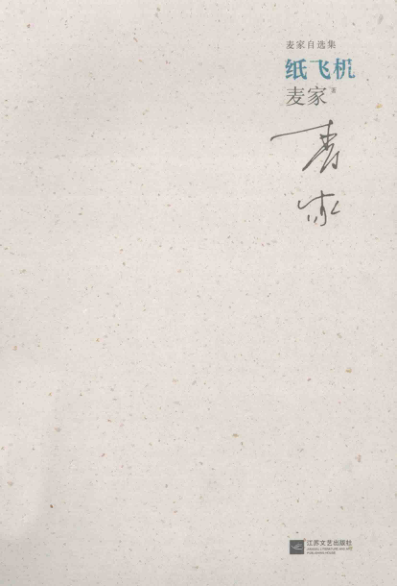 麦家自选集
纸飞机
麦家 著
麦家
江苏文艺出版社